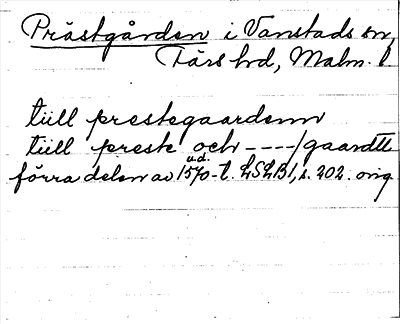 Prästgården i Vanstads sn,
Färs hrd, Malm. l
tiill prestegaardenn
tiill preste och ----/gaardtt
förra delen av 1570-t. LSLB1, s. 202. orig
u.d.